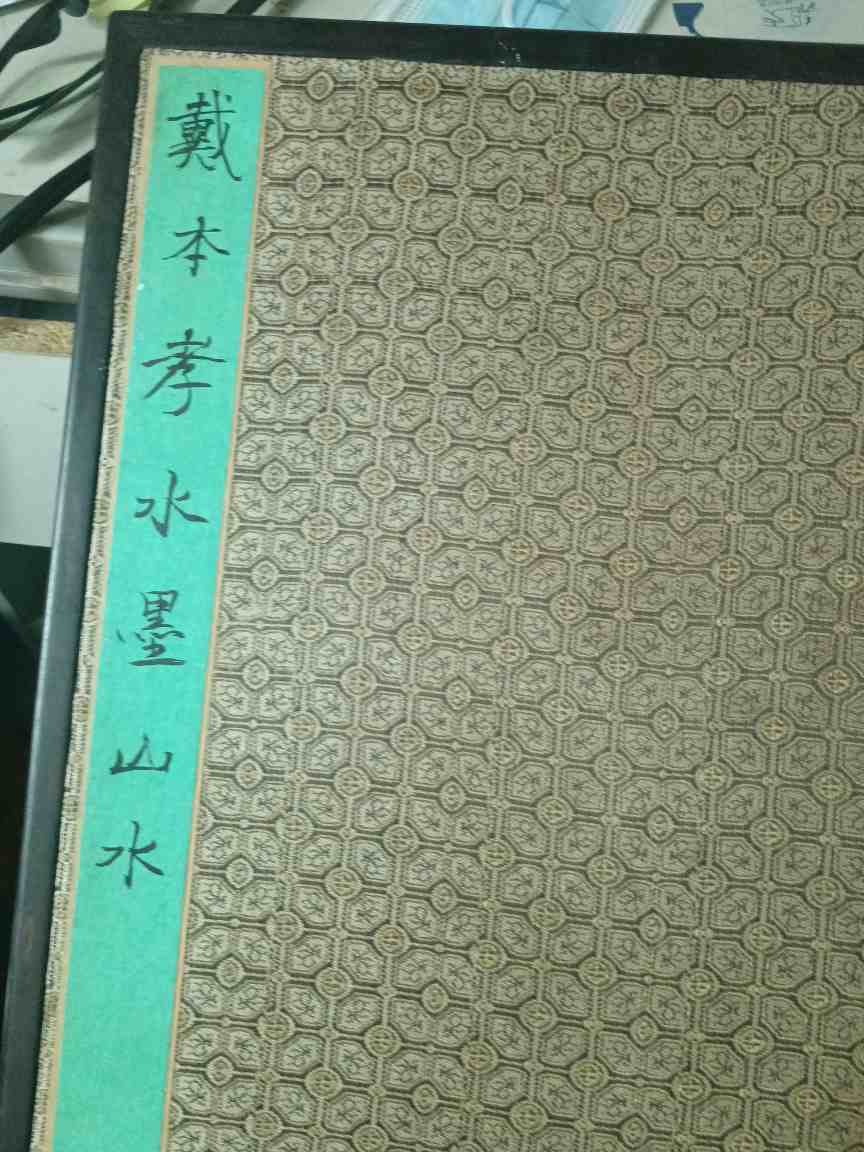 戴本孝水墨山水